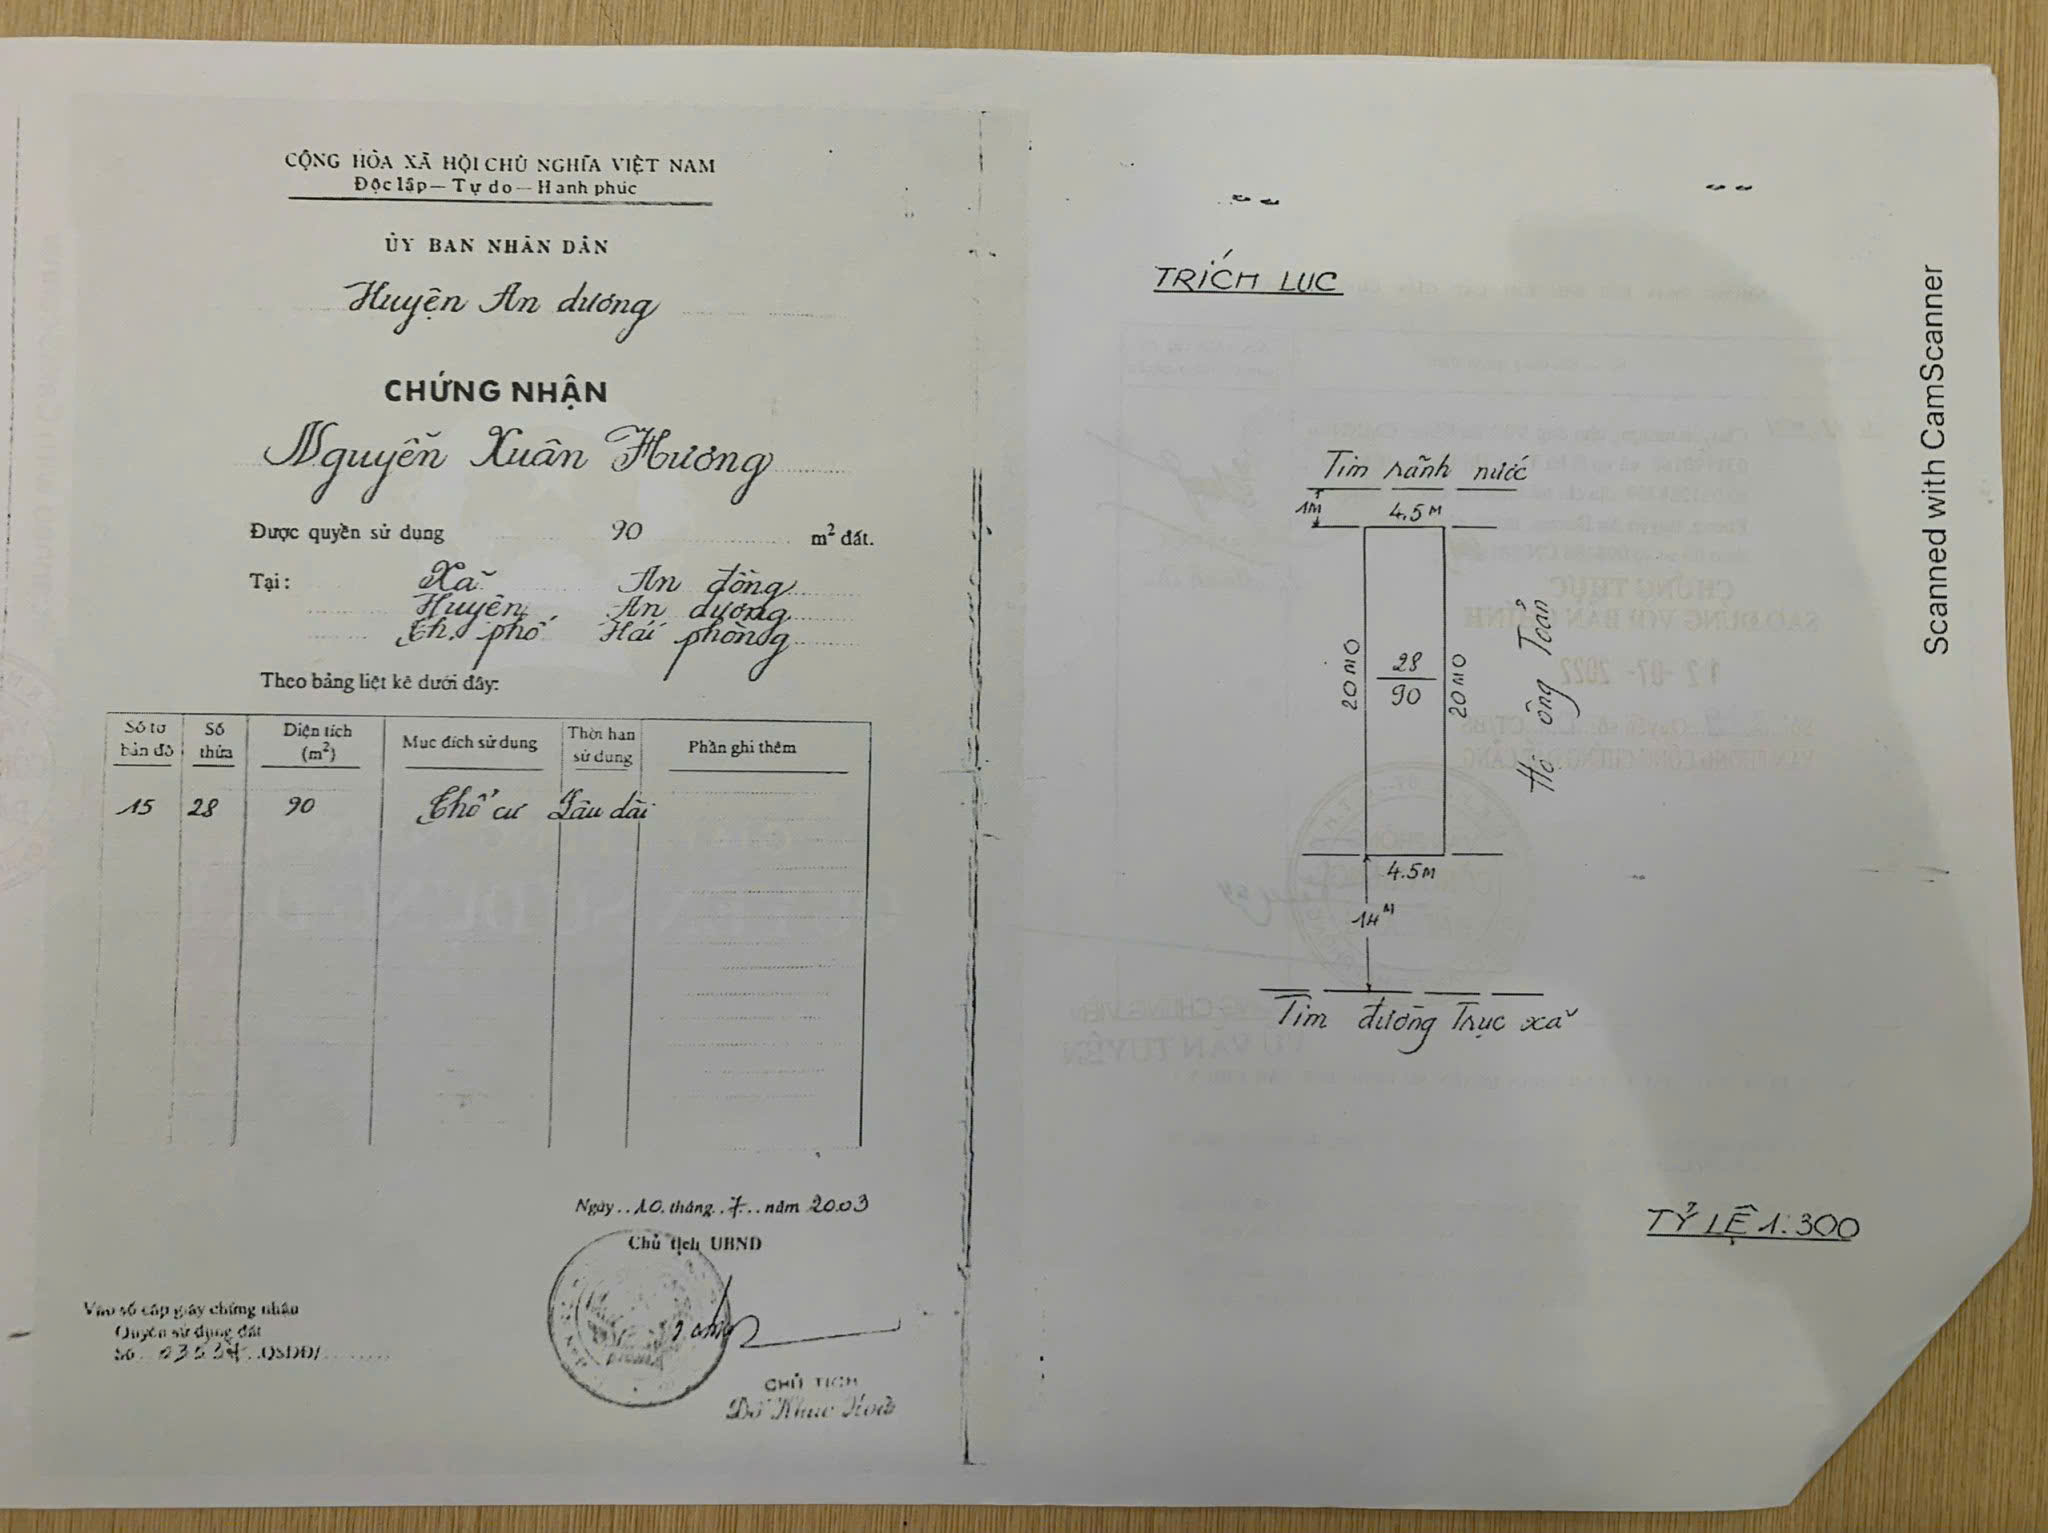 CỘNG HÒA XÃ HỘI CHỦ NGHĨA VIỆT NAM
Độc lập – Tự do – Hạnh phúc
ỦY BAN NHÂN DÂN
Huyện An dương
CHỨNG NHẬN
Nguyễn Xuân Hương
Được quyền sử dụng 90 m² đất.
Tại: Xã An đồng
Huyện An dương
Th. phố Hải phòng
Theo bảng liệt kê dưới đây:
Số tờ bản đồ
Số thửa
Diện tích (m²)
Mục đích sử dụng
Thời hạn sử dụng
Phần ghi thêm
15 28 90 Thổ cư Lâu dài
Ngày..10.tháng..7..năm 2003
Chủ tịch UBND
CHỦ TỊCH
Vào sổ cấp giấy chứng nhận
Quyền sử dụng đất
Số QSDĐ/
TRÍCH LỤC
Tim rãnh nước
1M
4.5M
20M0
28
90
20M0
Hộ ông Toản
4.5M
14M
Tim đường Trục xã
TỶ LỆ 1:300
Scanned with CamScanner
CHỨNG THỰC
SAO ĐÚNG VỚI BẢN CHÍNH
12-07-2022
VŨ VĂN TUYÊN